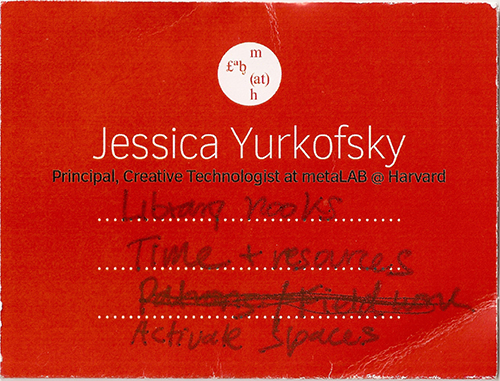 m
£ªђ
(at)
h
Jessica Yurkofsky
Principal, Creative Technologist at metaLAB @ Harvard
Library nooks
Time + resources
Patrons / Fieldwork
Activate Spaces